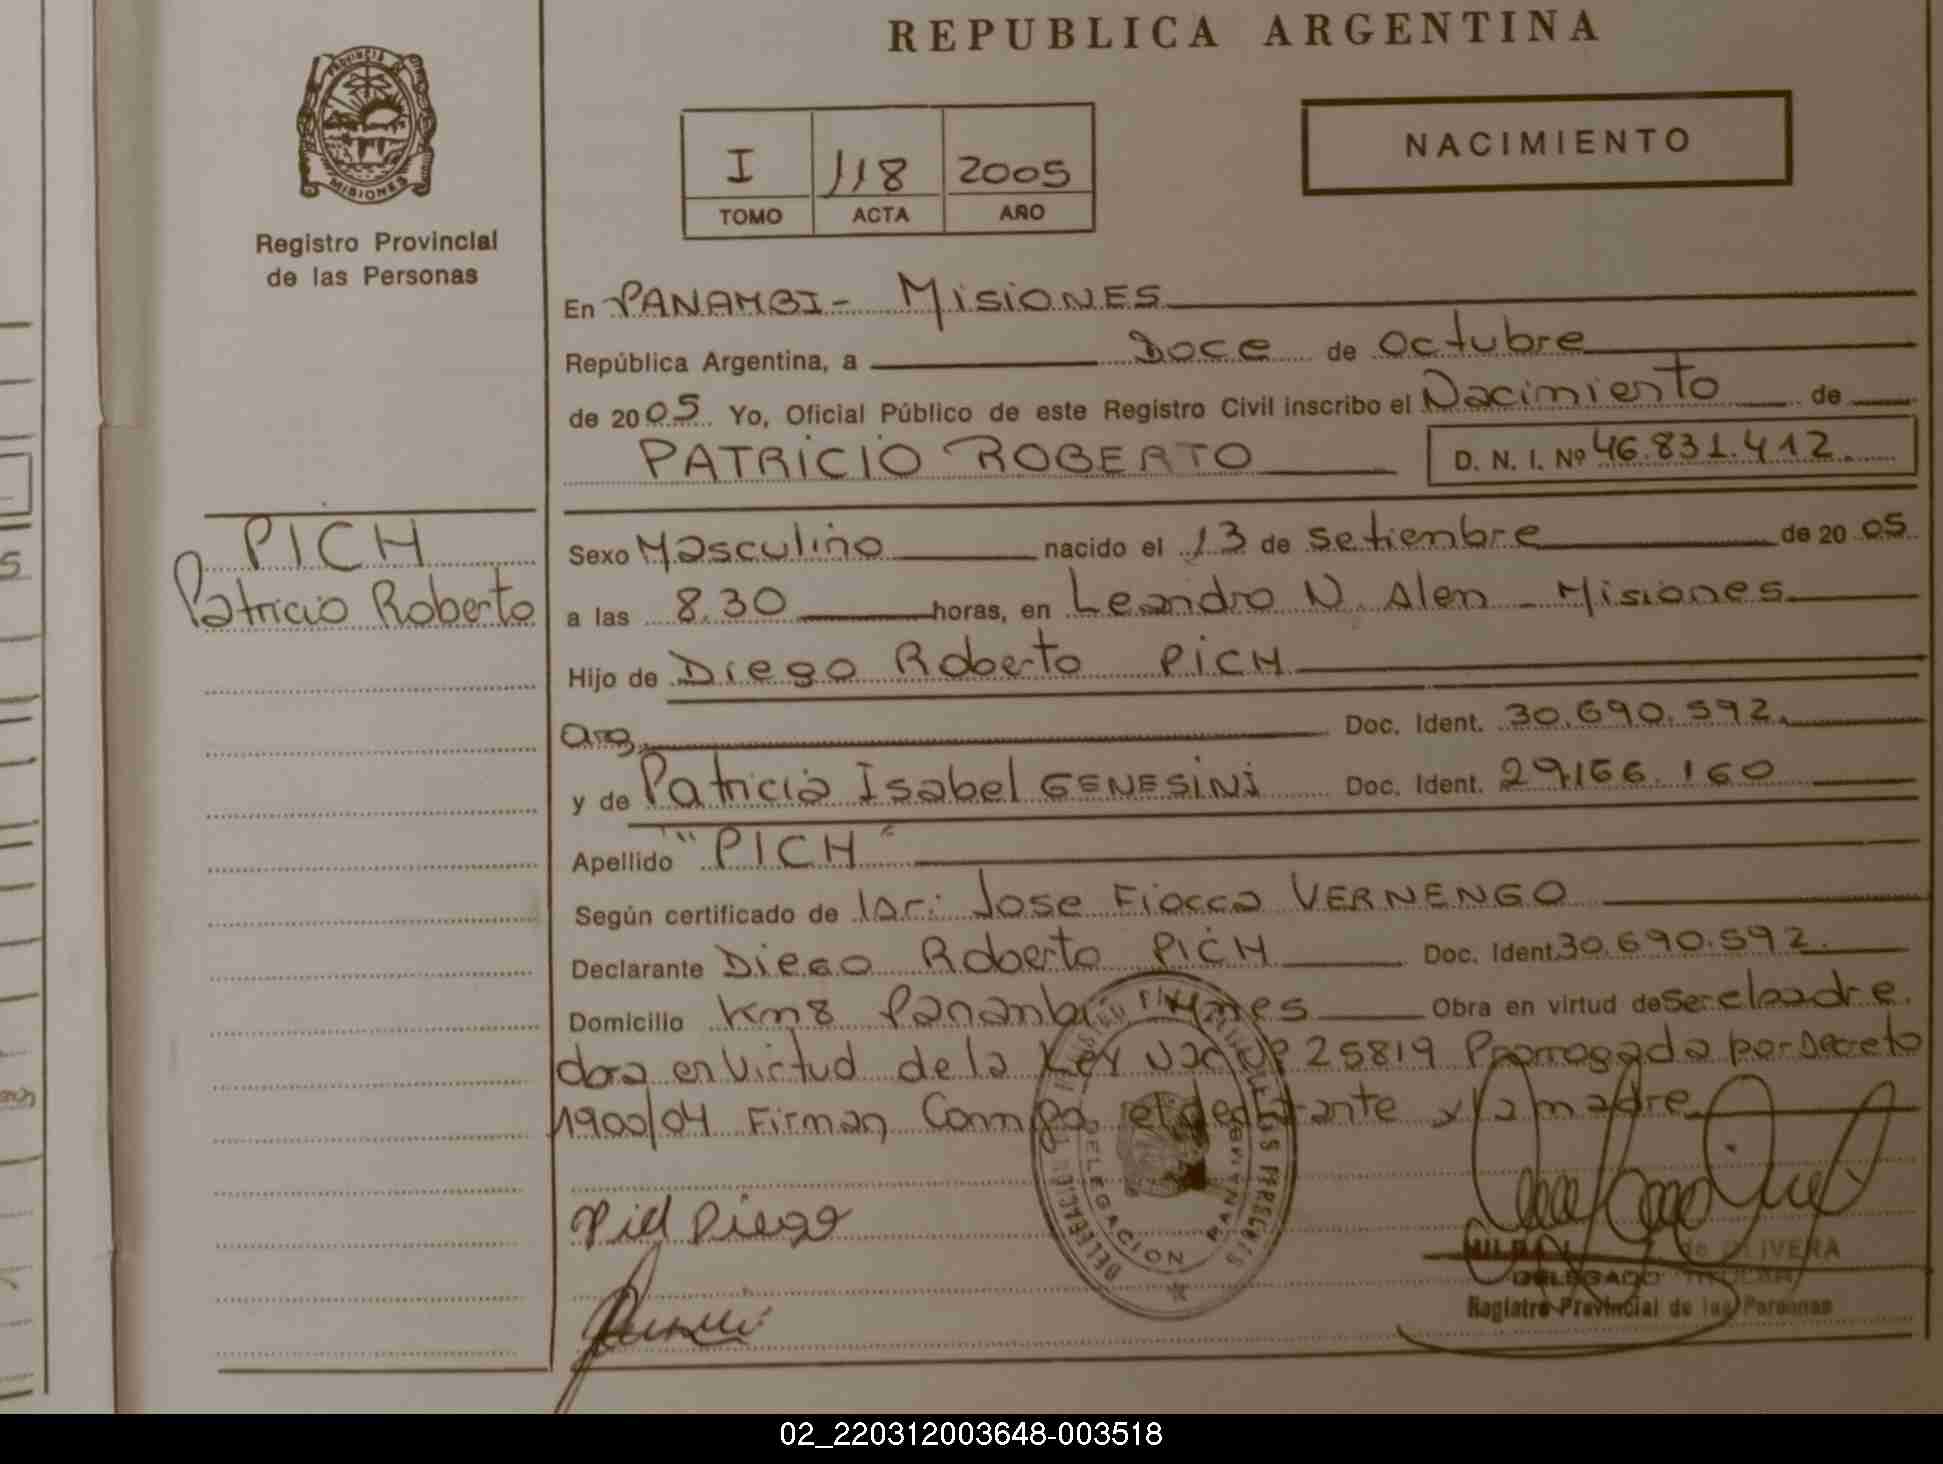 REPUBLICA ARGENTINA
PROVINCIA DE MISIONES
Registro Provincial
de las Personas
I 118 2005
TOMO ACTA AÑO
NACIMIENTO
En PANAMBI - MISIONES
República Argentina, a Doce de Octubre
de 2005 Yo, Oficial Público de este Registro Civil inscribo el Nacimiento de
PATRICIO ROBERTO D. N. I. Nº 46.831.412.
PICH
Patricio Roberto
Sexo Masculino nacido el 13 de setiembre de 2005
a las 8.30 horas, en Leandro N. Alen - Misiones
Hijo de Diego Roberto PICH
arg. Doc. Ident. 30.690.592.
y de Patricia Isabel GENESINI Doc. Ident. 29.166.160
Apellido "PICH"
Según certificado de Jose Fiocca VERNENGO
Declarante Diego Roberto PICH Doc. Ident. 30.690.592.
Domicilio Km8 Panambi Mnes Obra en virtud de Ser el padre.
obra en Virtud de la Ley Nac Nº 25819 Prorrogada por Decreto
1900/04 Firman Conmigo el declarante y la madre
DELEGACION PANAMBI
Pich Diego
de OLIVERA
DELEGADO TITULAR
Registro Provincial de las Personas
02_220312003648-003518